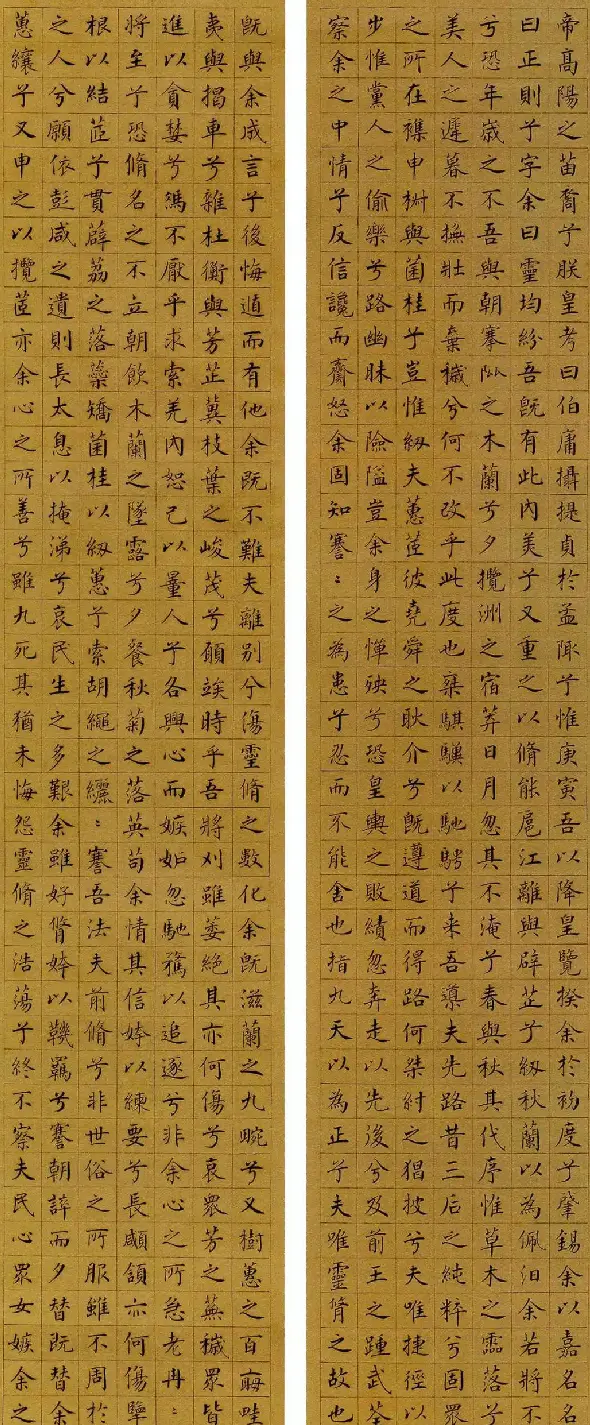 帝高陽之苗裔兮朕皇考曰伯庸攝提貞於孟陬兮惟庚寅吾以降皇覽揆余於初度兮肇錫余以嘉名名
曰正則兮字余曰靈均紛吾既有此內美兮又重之以脩能扈江離與辟芷兮紉秋蘭以為佩汨余若將不
兮恐年歲之不吾與朝搴阰之木蘭兮夕攬洲之宿莽日月忽其不淹兮春與秋其代序惟草木之霝落兮
美人之遲暮不撫壯而棄穢兮何不改乎此度也椉騏驥以馳騁兮来吾導夫先路昔三后之純粹兮固眾
之所在襍申樹與菌桂兮豈惟紉夫蕙茝彼堯舜之耿介兮既遵道而得路何桀紂之猖披兮夫唯捷徑以
步惟黨人之偷樂兮路幽昧以險隘豈余身之憚殃兮恐皇輿之敗績忽奔走以先後兮及前王之踵武荃
察余之中情兮反信讒而齌怒余固知謇〻之為患兮忍而不能舍也指九天以為正兮夫唯靈脩之故也
既與余成言兮後悔遁而有他余既不難夫離別兮傷靈脩之數化余既滋蘭之九畹兮又樹蕙之百畝畦
夷與揭車兮雜杜衡與芳芷冀枝葉之峻茂兮願竢時乎吾將刈雖萎絕其亦何傷兮哀眾芳之蕪穢眾皆
進以貪婪兮馮不厭乎求索羌內恕己以量人兮各興心而嫉妒忽馳騖以追逐兮非余心之所急老冉〻
將至兮恐脩名之不立朝飲木蘭之墜露兮夕餐秋菊之落英苟余情其信姱以練要兮長顑頷亦何傷擥
根以結茝兮貫薜荔之落蘂矯菌桂以紉蕙兮索胡繩之纚〻謇吾法夫前脩兮非世俗之所服雖不周於
之人兮願依彭咸之遺則長太息以掩涕兮哀民生之多艱余雖好脩姱以鞿羈兮謇朝誶而夕替既替余
蕙纕兮又申之以攬茝亦余心之所善兮雖九死其猶未悔怨靈脩之浩蕩兮終不察夫民心眾女嫉余之